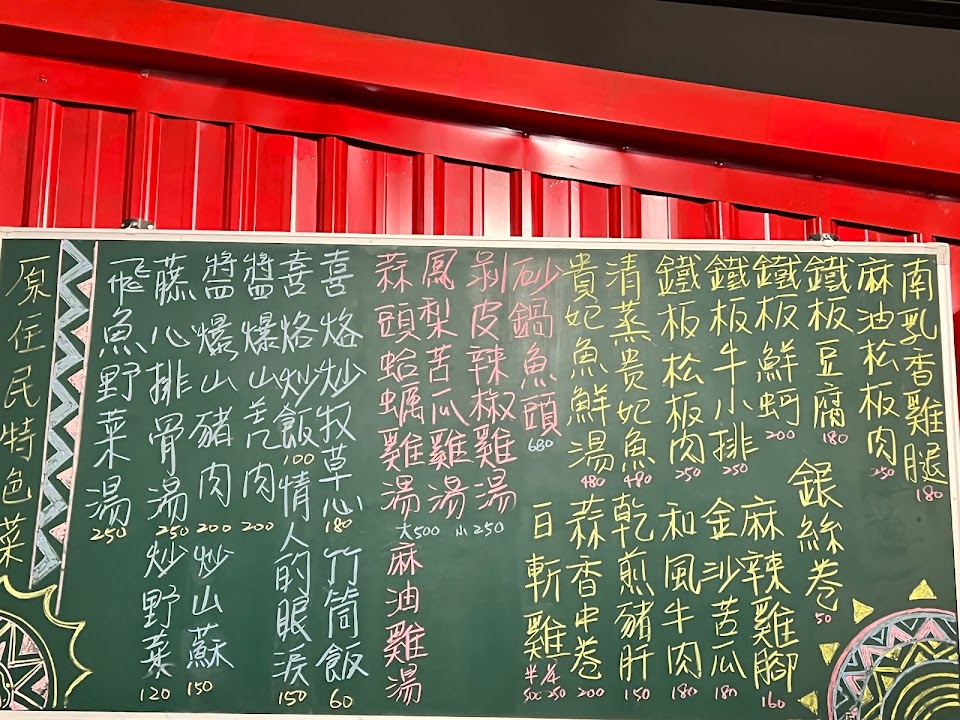 南乳香雞腿 180
麻油松板肉 250
鐵板豆腐 180
銀絲卷 50
鐵板鮮蚵 200
麻辣雞腳 160
鐵板牛小排 250
金沙苦瓜 180
鐵板松板肉 250
和風牛肉 180
清蒸贵妃魚 480
乾煎豬肝 150
貴妃魚鮮湯 480
蒜香中卷 200
砂鍋魚頭 680
白斬雞 半 500 250
剝皮辣椒雞湯
鳳梨苦瓜雞湯
蒜頭蛤蠣雞湯
大500 小250
麻油雞湯
原住民特色菜
喜烙炒牧草心 180
竹筒飯 60
喜烙炒飯 100
情人的眼淚 150
醬爆山羌肉 200
醬爆山豬肉 200
炒山蘇 150
藤心排骨湯 250
炒野菜 120
飛魚野菜湯 250